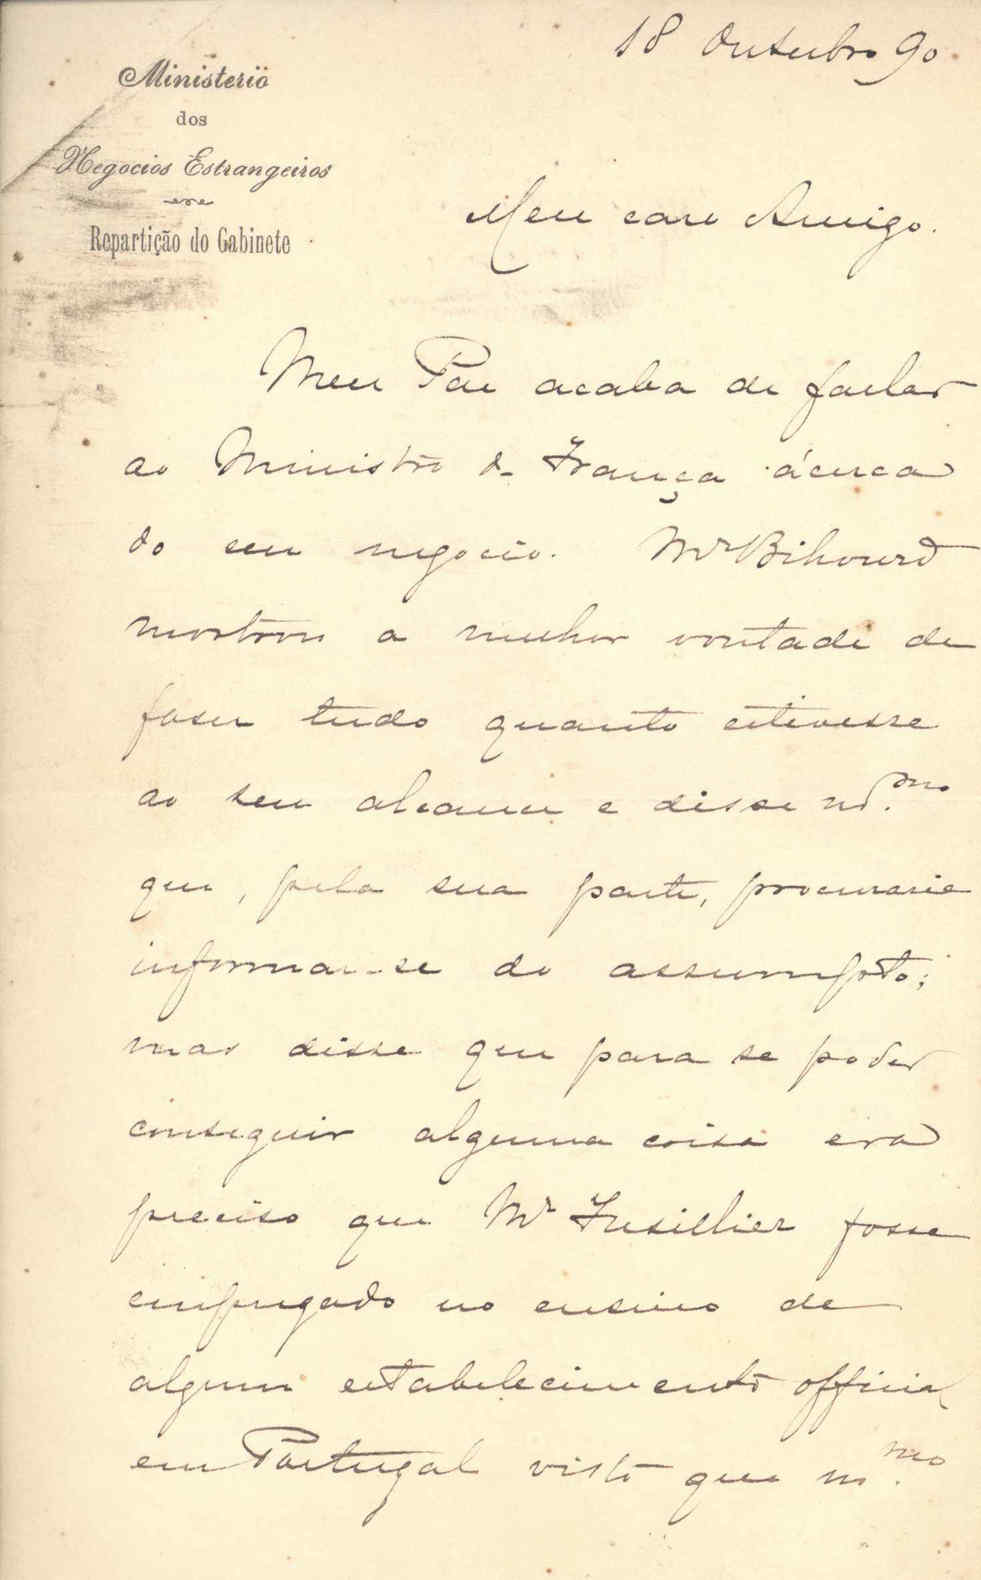 18 Outubro 90.
Ministerio
dos
Negocios Estrangeiros
Repartição do Gabinete
Meu caro Amigo.
Meu Pae acaba de fallar
ao Ministro de França ácerca
do seu negocio. Mr Bihourd
mostrou a melhor vontade de
faser tudo quanto estivesse
ao seu alcance e disse
que, pela sua parte, procuraria
informar-se do assumpto;
mas disse que para se poder
conseguir alguma coisa era
preciso que Mr Fusillier fosse
empregado no ensino de
algum estabelecimento official
em Portugal visto que